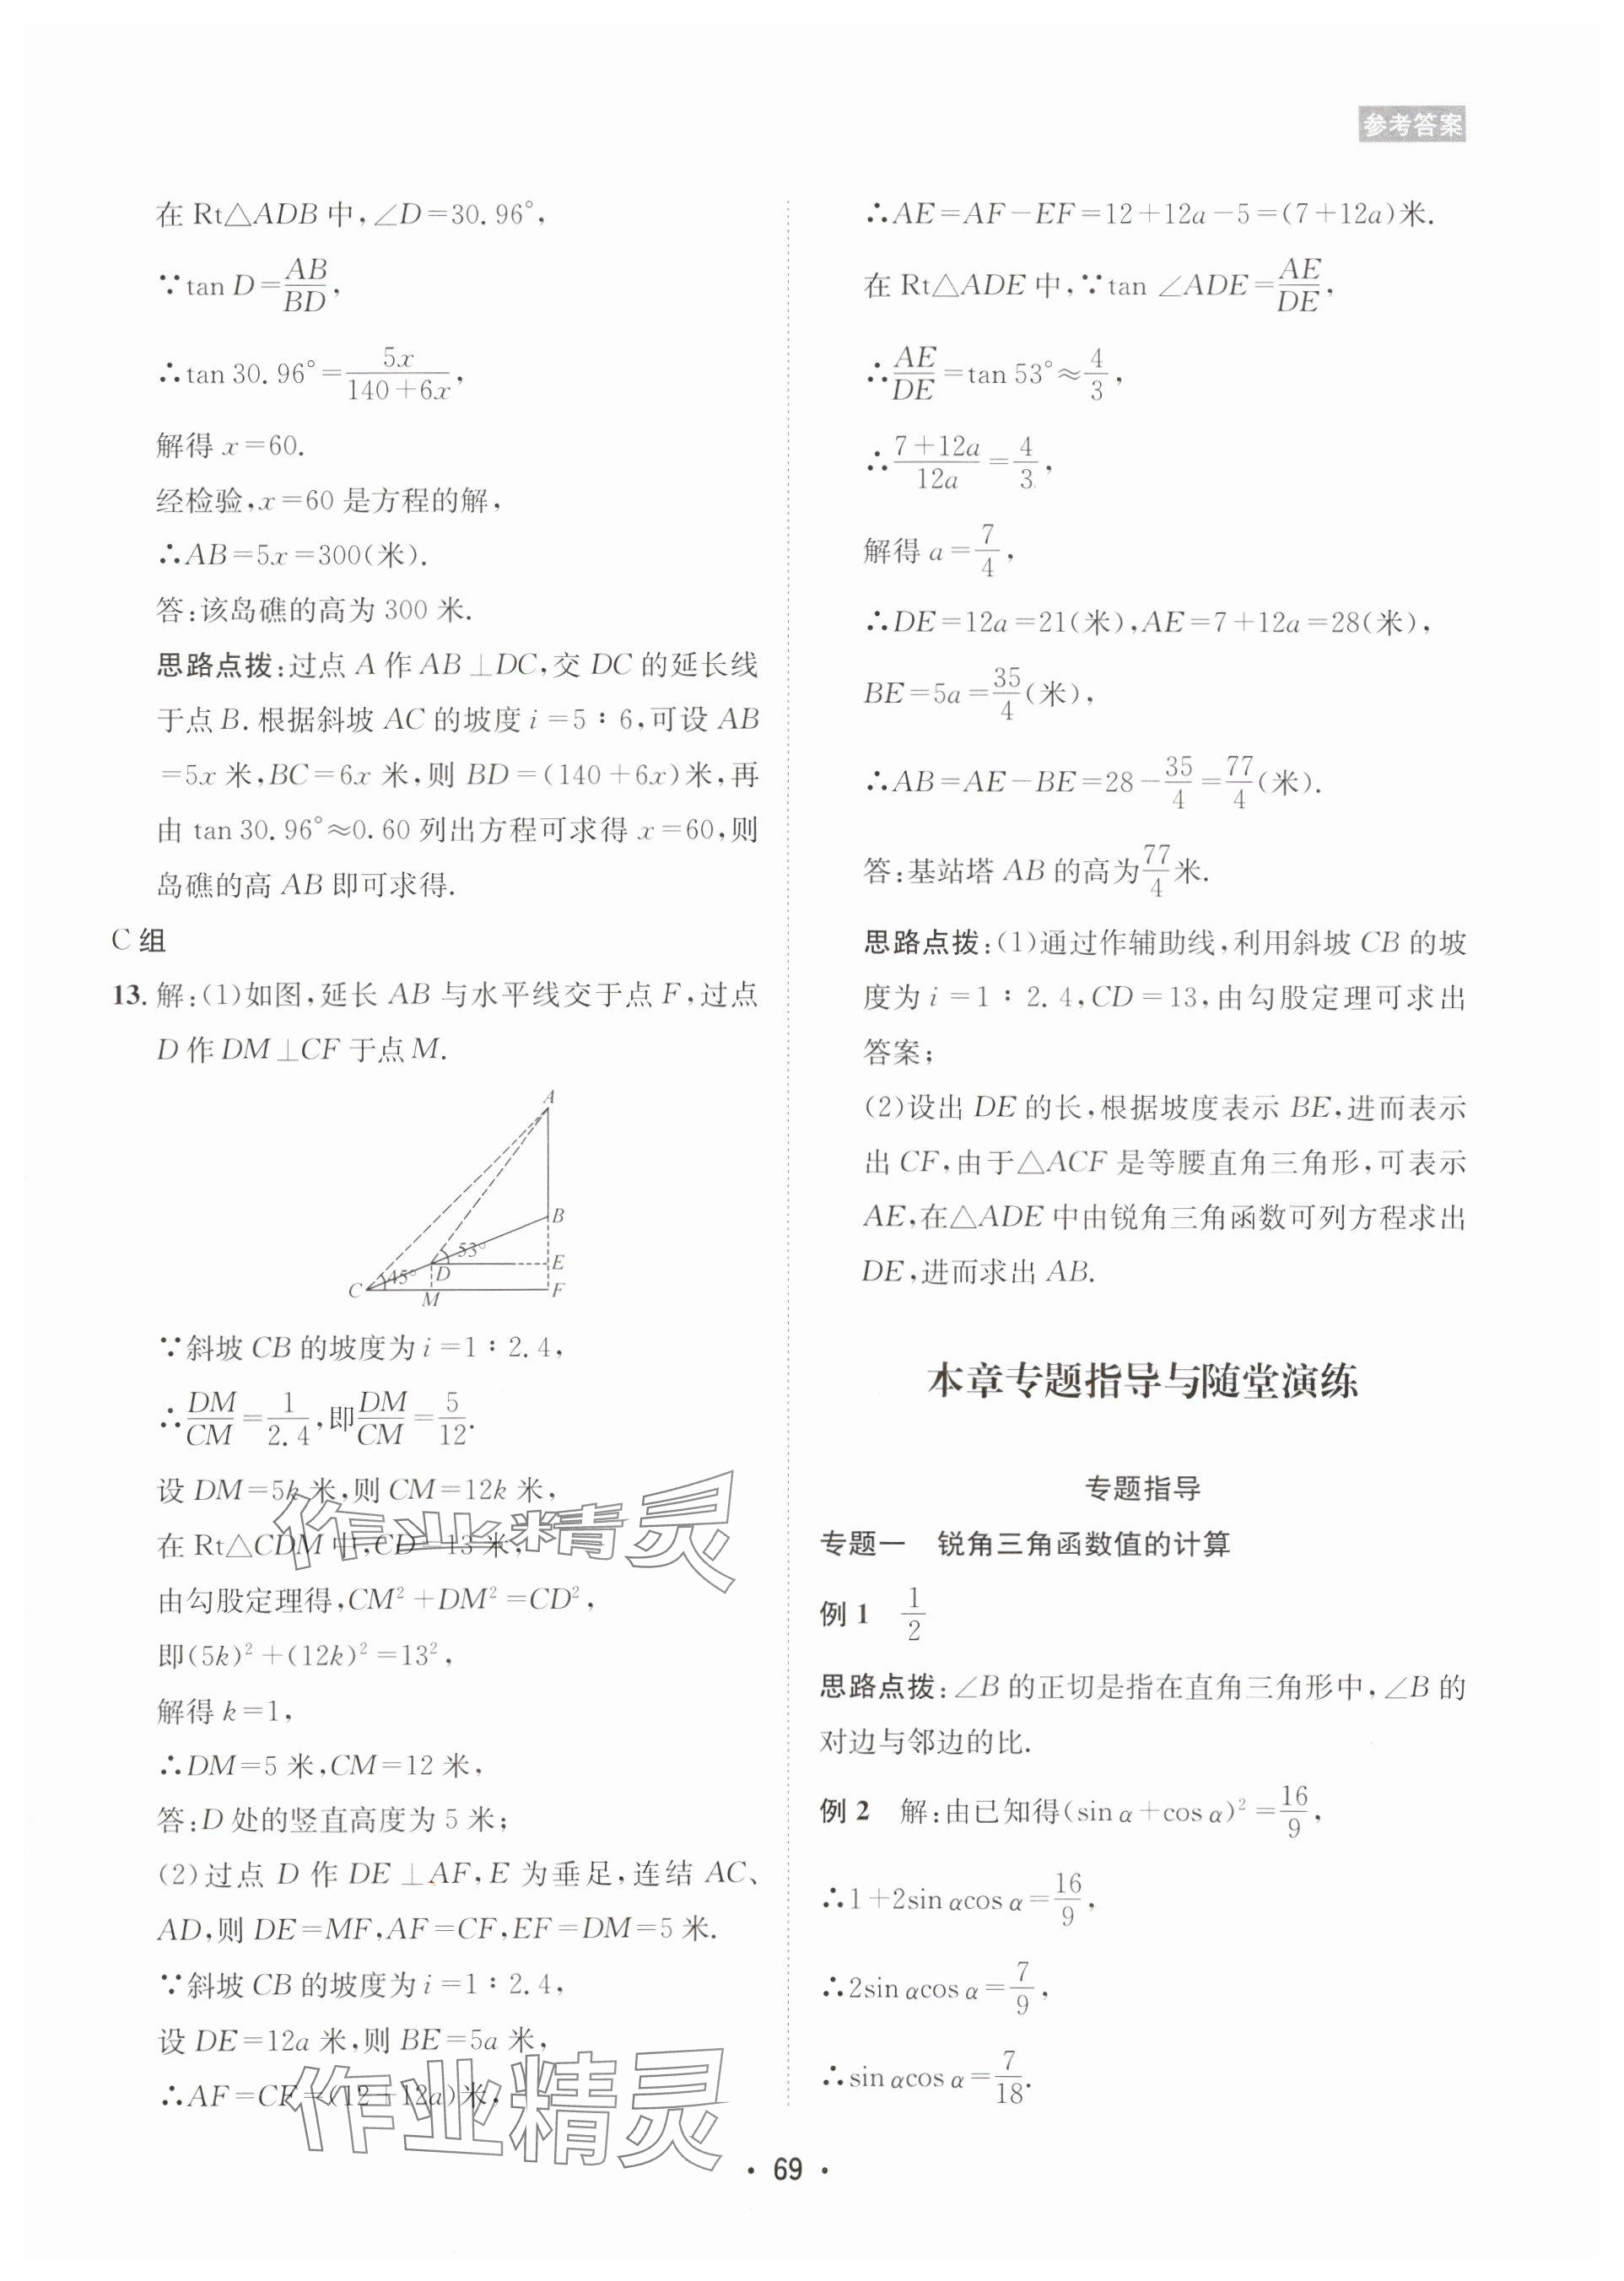 参考答案
在 Rt△ADB 中,∠D=30.96°,
∵tan D=AB/BD,
∴tan 30.96°=5x/(140+6x),
解得 x=60.
经检验,x=60 是方程的解,
∴AB=5x=300(米).
答:该岛礁的高为 300 米.
思路点拨:过点 A 作 AB⊥DC,交 DC 的延长线
于点 B. 根据斜坡 AC 的坡度 i=5∶6,可设 AB
=5x 米,BC=6x 米,则 BD=(140+6x)米,再
由 tan 30.96°≈0.60 列出方程可求得 x=60,则
岛礁的高 AB 即可求得.
C 组
13. 解:(1)如图,延长 AB 与水平线交于点 F,过点
D 作 DM⊥CF 于点 M.
A
B
53°
E
C
45°
D
F
M
∵斜坡 CB 的坡度为 i=1∶2.4,
∴DM/CM=1/2.4,即DM/CM=5/12.
设 DM=5k 米,则 CM=12k 米,
在 Rt△CDM 中,CD=13 米,
由勾股定理得,CM²+DM²=CD²,
即(5k)²+(12k)²=13²,
解得 k=1,
∴DM=5 米,CM=12 米,
答:D 处的竖直高度为 5 米;
(2)过点 D 作 DE⊥AF,E 为垂足,连结 AC、
AD,则 DE=MF,AF=CF,EF=DM=5 米.
∵斜坡 CB 的坡度为 i=1∶2.4,
设 DE=12a 米,则 BE=5a 米,
∴AF=CF=(12+12a)米,
∴AE=AF-EF=12+12a-5=(7+12a)米.
在 Rt△ADE 中,∵tan ∠ADE=AE/DE,
∴AE/DE=tan 53°≈4/3,
∴(7+12a)/12a=4/3,
解得 a=7/4,
∴DE=12a=21(米),AE=7+12a=28(米),
BE=5a=35/4(米),
∴AB=AE-BE=28-35/4=77/4(米).
答:基站塔 AB 的高为77/4米.
思路点拨:(1)通过作辅助线,利用斜坡 CB 的坡
度为 i=1∶2.4,CD=13,由勾股定理可求出
答案;
(2)设出 DE 的长,根据坡度表示 BE,进而表示
出 CF,由于△ACF 是等腰直角三角形,可表示
AE,在△ADE 中由锐角三角函数可列方程求出
DE,进而求出 AB.
本章专题指导与随堂演练
专题指导
专题一 锐角三角函数值的计算
例 1 1/2
思路点拨:∠B 的正切是指在直角三角形中,∠B 的
对边与邻边的比.
例 2 解:由已知得(sin α+cos α)²=16/9,
∴1+2sin αcos α=16/9,
∴2sin αcos α=7/9,
∴sin αcos α=7/18.
作业精灵
作业精灵
• 69 •